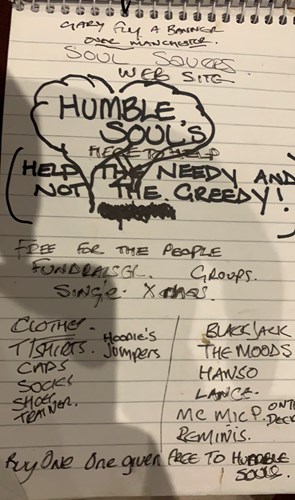 GARY FLY A BANNER
OVER MANCHESTER.
SOUL SAUCES
WEB SITE
HUMBLE
SOUL'S
HERE TO HELP
(HELP THE NEEDY AND
NOT THE GREEDY!)
FREE FOR THE PEOPLE
FUNDRAISGL. GROUPS.
Single. Xmas.
CLOTHES.
T/SHIRTS. HOODIE'S
CAPS JUMPERS
SOCKS
SHOES.
TRAINER.
BLACKJACK
THE MOODS
HANSO
LANCE.
MC MIC P. ONTH
DECK
REMINIS.
Buy ONE ONE given FREE TO HUMBLE
SOULS.